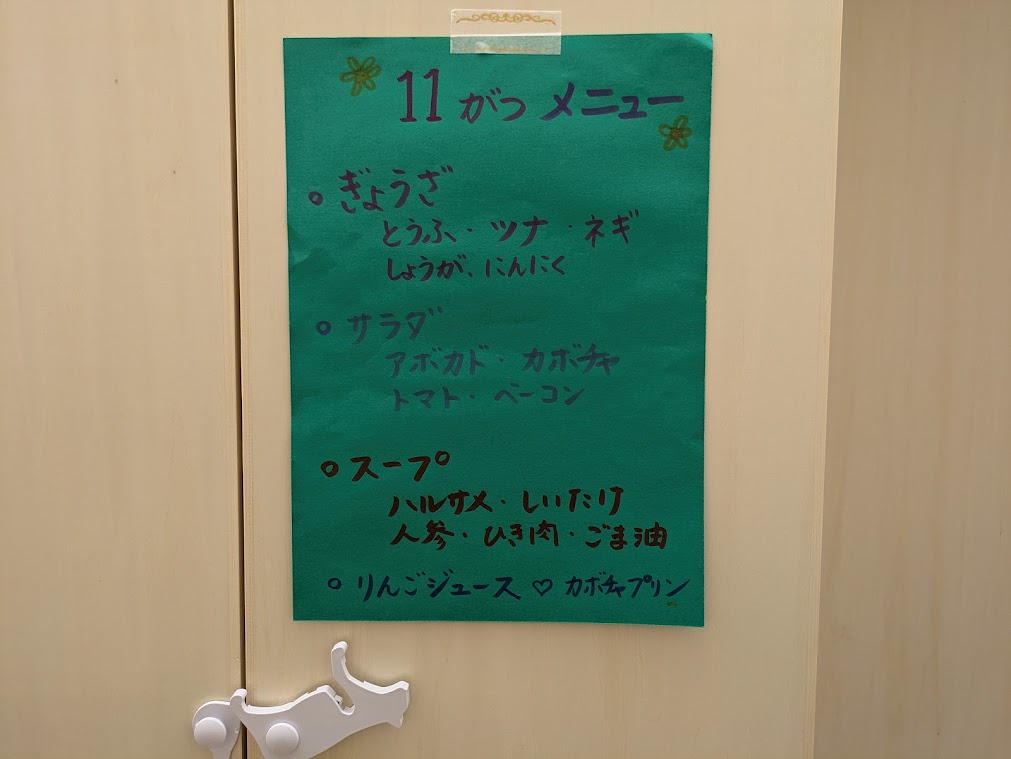 11がつ メニュー
○ ぎょうざ
とうふ・ツナ・ネギ
しょうが、にんにく
○ サラダ
アボカド・カボチャ
トマト・ベーコン
○ スープ
ハルサメ・しいたけ
人参・ひき肉・ごま油
○ りんごジュース ♡ カボチャプリン